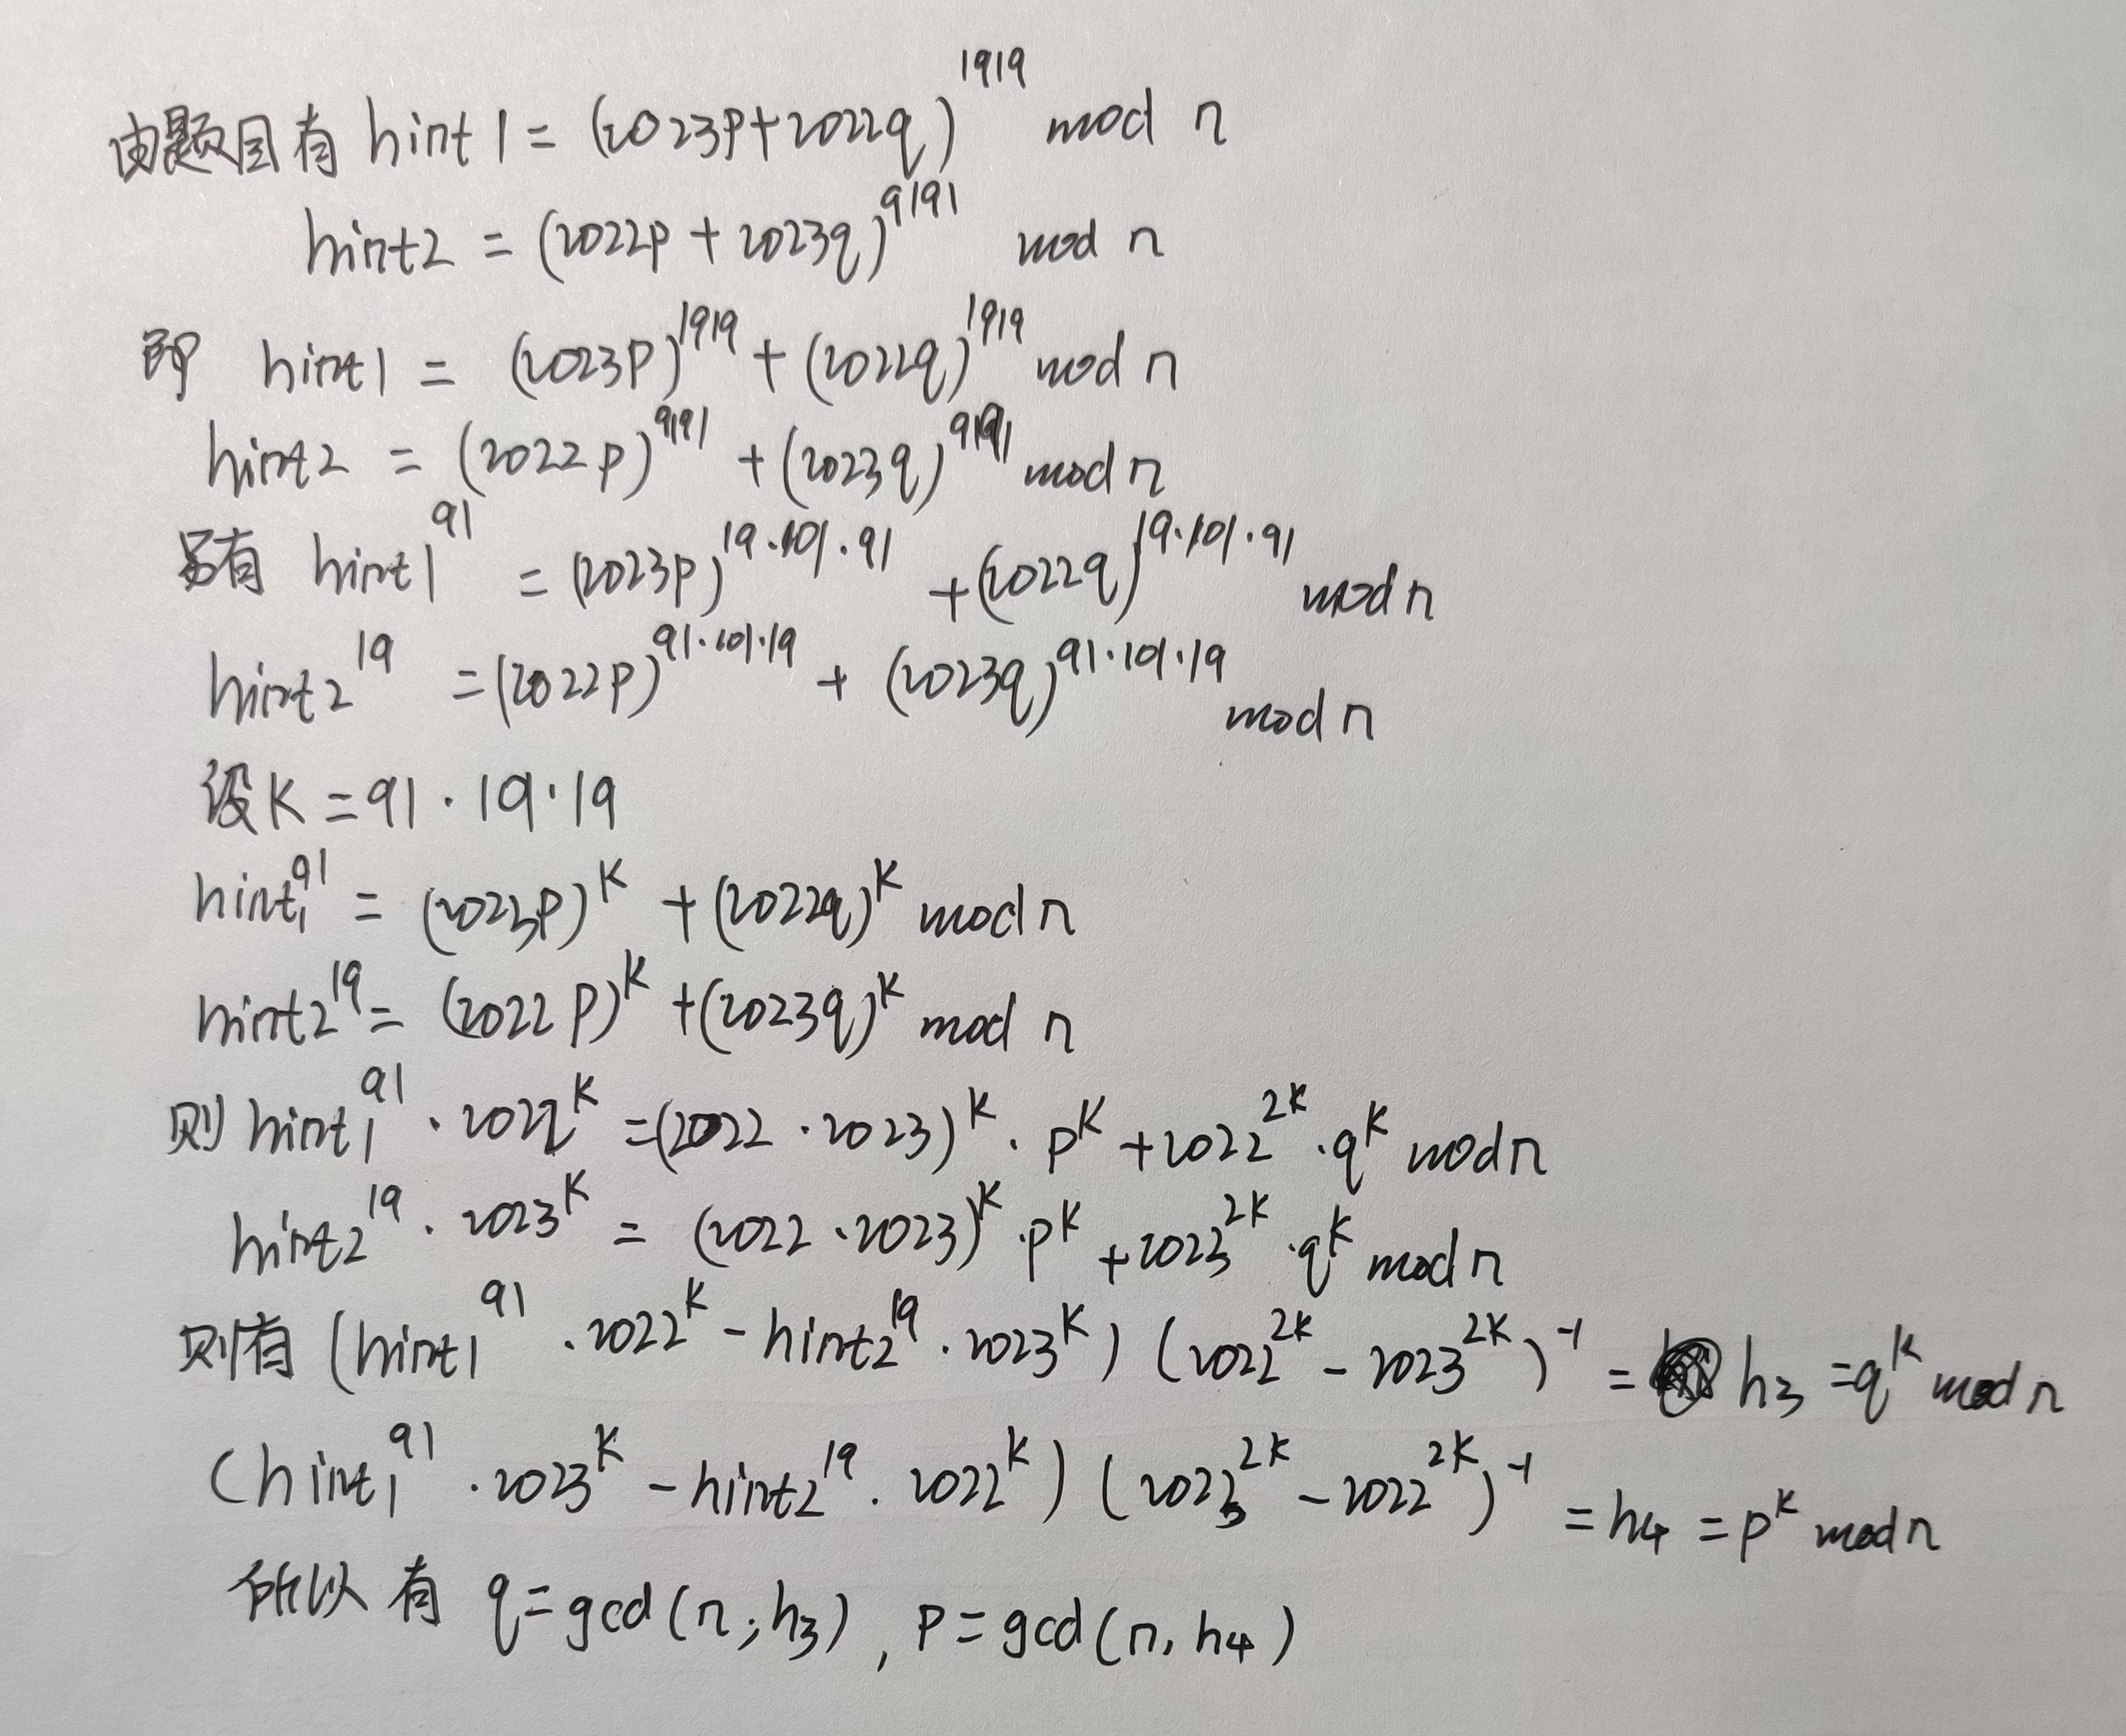 由题目有 hint1 = (2023p+2022q)^1919 mod n
hint2 = (2022p + 2023q)^9191 mod n
即 hint1 = (2023p)^1919 + (2022q)^1919 mod n
hint2 = (2022p)^9191 + (2023q)^9191 mod n
另有 hint1^91 = (2023p)^19·101·91 + (2022q)^19·101·91 mod n
hint2^19 = (2022p)^91·101·19 + (2023q)^91·101·19 mod n
设K = 91·19·19
hint1^91 = (2023p)^K + (2022q)^K mod n
hint2^19 = (2022p)^K + (2023q)^K mod n
则 hint1^91 · 2022^K = (2022·2023)^K · p^K + 2022^2K · q^K mod n
hint2^19 · 2023^K = (2022·2023)^K · p^K + 2023^2K · q^K mod n
则有 (hint1^91 · 2022^K - hint2^19 · 2023^K) (2022^2K - 2023^2K)^-1 = h3 = q^K mod n
(hint1^91 · 2023^K - hint2^19 · 2022^K) (2023^2K - 2022^2K)^-1 = h4 = p^K mod n
所以有 q = gcd(n, h3), p = gcd(n, h4)